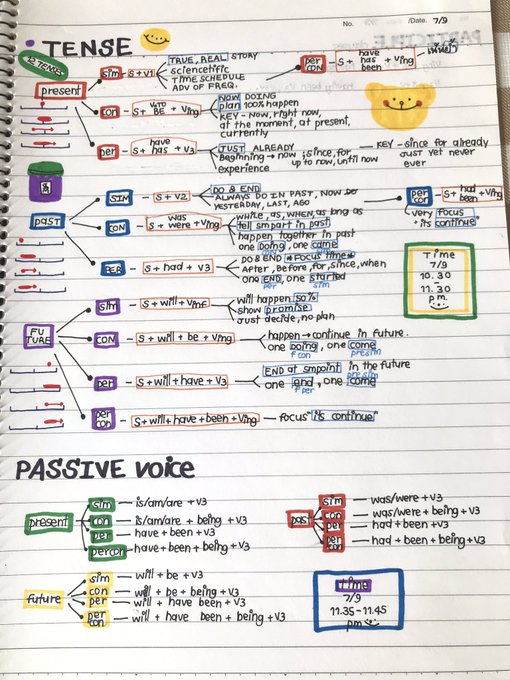 No. /Date. 7/9
TENSE
12 TENSES
present
sim - S+V1
TRUE, REAL STORY
scienctefitic
TIME SCHEDULE
ADV OF FREQ.
per con - S + have has + been + Ving
con - S + V to BE + Ving
NOW DOING
plan 100% happen
KEY - NOW, right now,
at the moment, at present,
currently
per - S + have has + V3
JUST ALREADY
Beginning → now ; since, for
up to now, until now
experience
KEY - since for already
just yet never
ever
past
SIM - S + V2
DO & END
ALWAYS DO IN PAST, NOW
YESTERDAY, LAST, AGO
per con - S + had been + Ving
"very focus
" its continue"
CON - S + was were + Ving
while, as, WHEN, as long as
tell smpart in past
happen together in past
one doing, one came
con sim
PER - S + had + V3
DO & END *FOCUS time*
After, before, for, since, when
one END, one started
per sim
Time
7/9
10.30
-
11.30
p.m.
FUTURE
sim - S + will + Vinf
will happen 50%
show promise
Just decide, no plan
CON - S + will + be + Ving
happen → continue in future.
one doing, one come
f con presim
per - S + will + have + V3
END at smpoint in the future
one end, one come
f per presim
per con - S + will + have + been + Ving - focus "its continue"
PASSIVE voice
present
sim — is/am/are + V3
con — is/am/are + being + V3
per — have + been + V3
percon — have + been + being + V3
past
sim — was/were + V3
con — was/were + being + V3
per — had + been + V3
per con — had + been + being + V3
future
sim — will + be + V3
con — will + be + being + V3
per — will + have been + V3
per con — will + have been + being + V3
time
7/9
11.35-11.45
pm